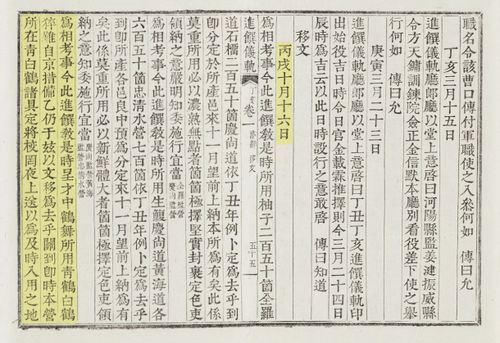 職名令該曹口傳付軍職使之入叅何如　傳曰允
丁亥三月十五日
進饌儀軌廳郞廳以堂上意啓曰河陽縣監姜漣振威縣
令方天鏞訓鍊院僉正金信默本廳別看役差下使之擧
行何如　傳曰允
庚寅三月二十三日
進饌儀軌廳郞廳以堂上意啓曰丁丑丁亥進饌儀軌印
出始役吉日時令日官金載霖推擇則今三月二十四日
辰時爲吉云以此日時設行之意敢啓　傳曰知道
移文
丙戌十月十六日
爲相考事今此進饌敎是時所用柚子二百五十箇全羅
進饌儀軌 卷一 移文 五十五
道石榴二百五十箇慶尙道依丁丑年例卜定爲去乎到
卽分定於所產邑來十一月望前上納本所爲有矣此係
莫重所用必以濃熟無點者箇箇極擇堅實封裹定色吏
領納之意嚴明知委施行宜當 全羅監營 慶尙監營
爲相考事今此進饌敎是時所用生鰒慶尙道黃海道各
六百五十箇忠淸水營七百箇依丁丑年例卜定爲去乎
到卽所產各邑良中預爲分定來十一月望前上納爲有
矣此係莫重所用必以新鮮體大者箇箇極擇定色吏領
納之意知委施行宜當 慶尙監營黃海監營忠淸水營
爲相考事今此進饌敎是時呈才中鶴舞所用靑鶴白鶴
猝難自京措備乙仍于玆以文移爲去乎關到卽時本營
所在靑白鶴諸具定將校罔夜上送以爲及時入用之地